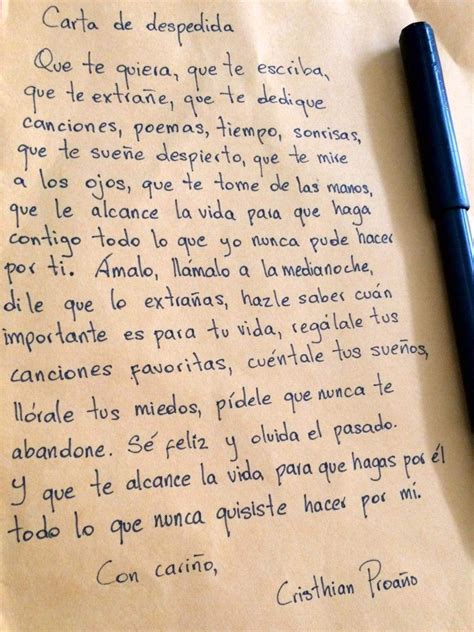 Carta de despedida
Que te quiera, que te escriba,
que te extrañe, que te dedique
canciones, poemas, tiempo, sonrisas,
que te sueñe despierto, que te mire
a los ojos, que te tome de las manos,
que le alcance la vida para que haga
contigo todo lo que yo nunca pude hacer
por ti. Ámalo, llámalo a la medianoche,
dile que lo extrañas, hazle saber cuán
importante es para tu vida, regálale tus
canciones favoritas, cuéntale tus sueños,
llórale tus miedos, pídele que nunca te
abandone. Sé feliz y olvida el pasado.
Y que te alcance la vida para que hagas por él
todo lo que nunca quisiste hacer por mí.
Con cariño,
Cristhian Proaño